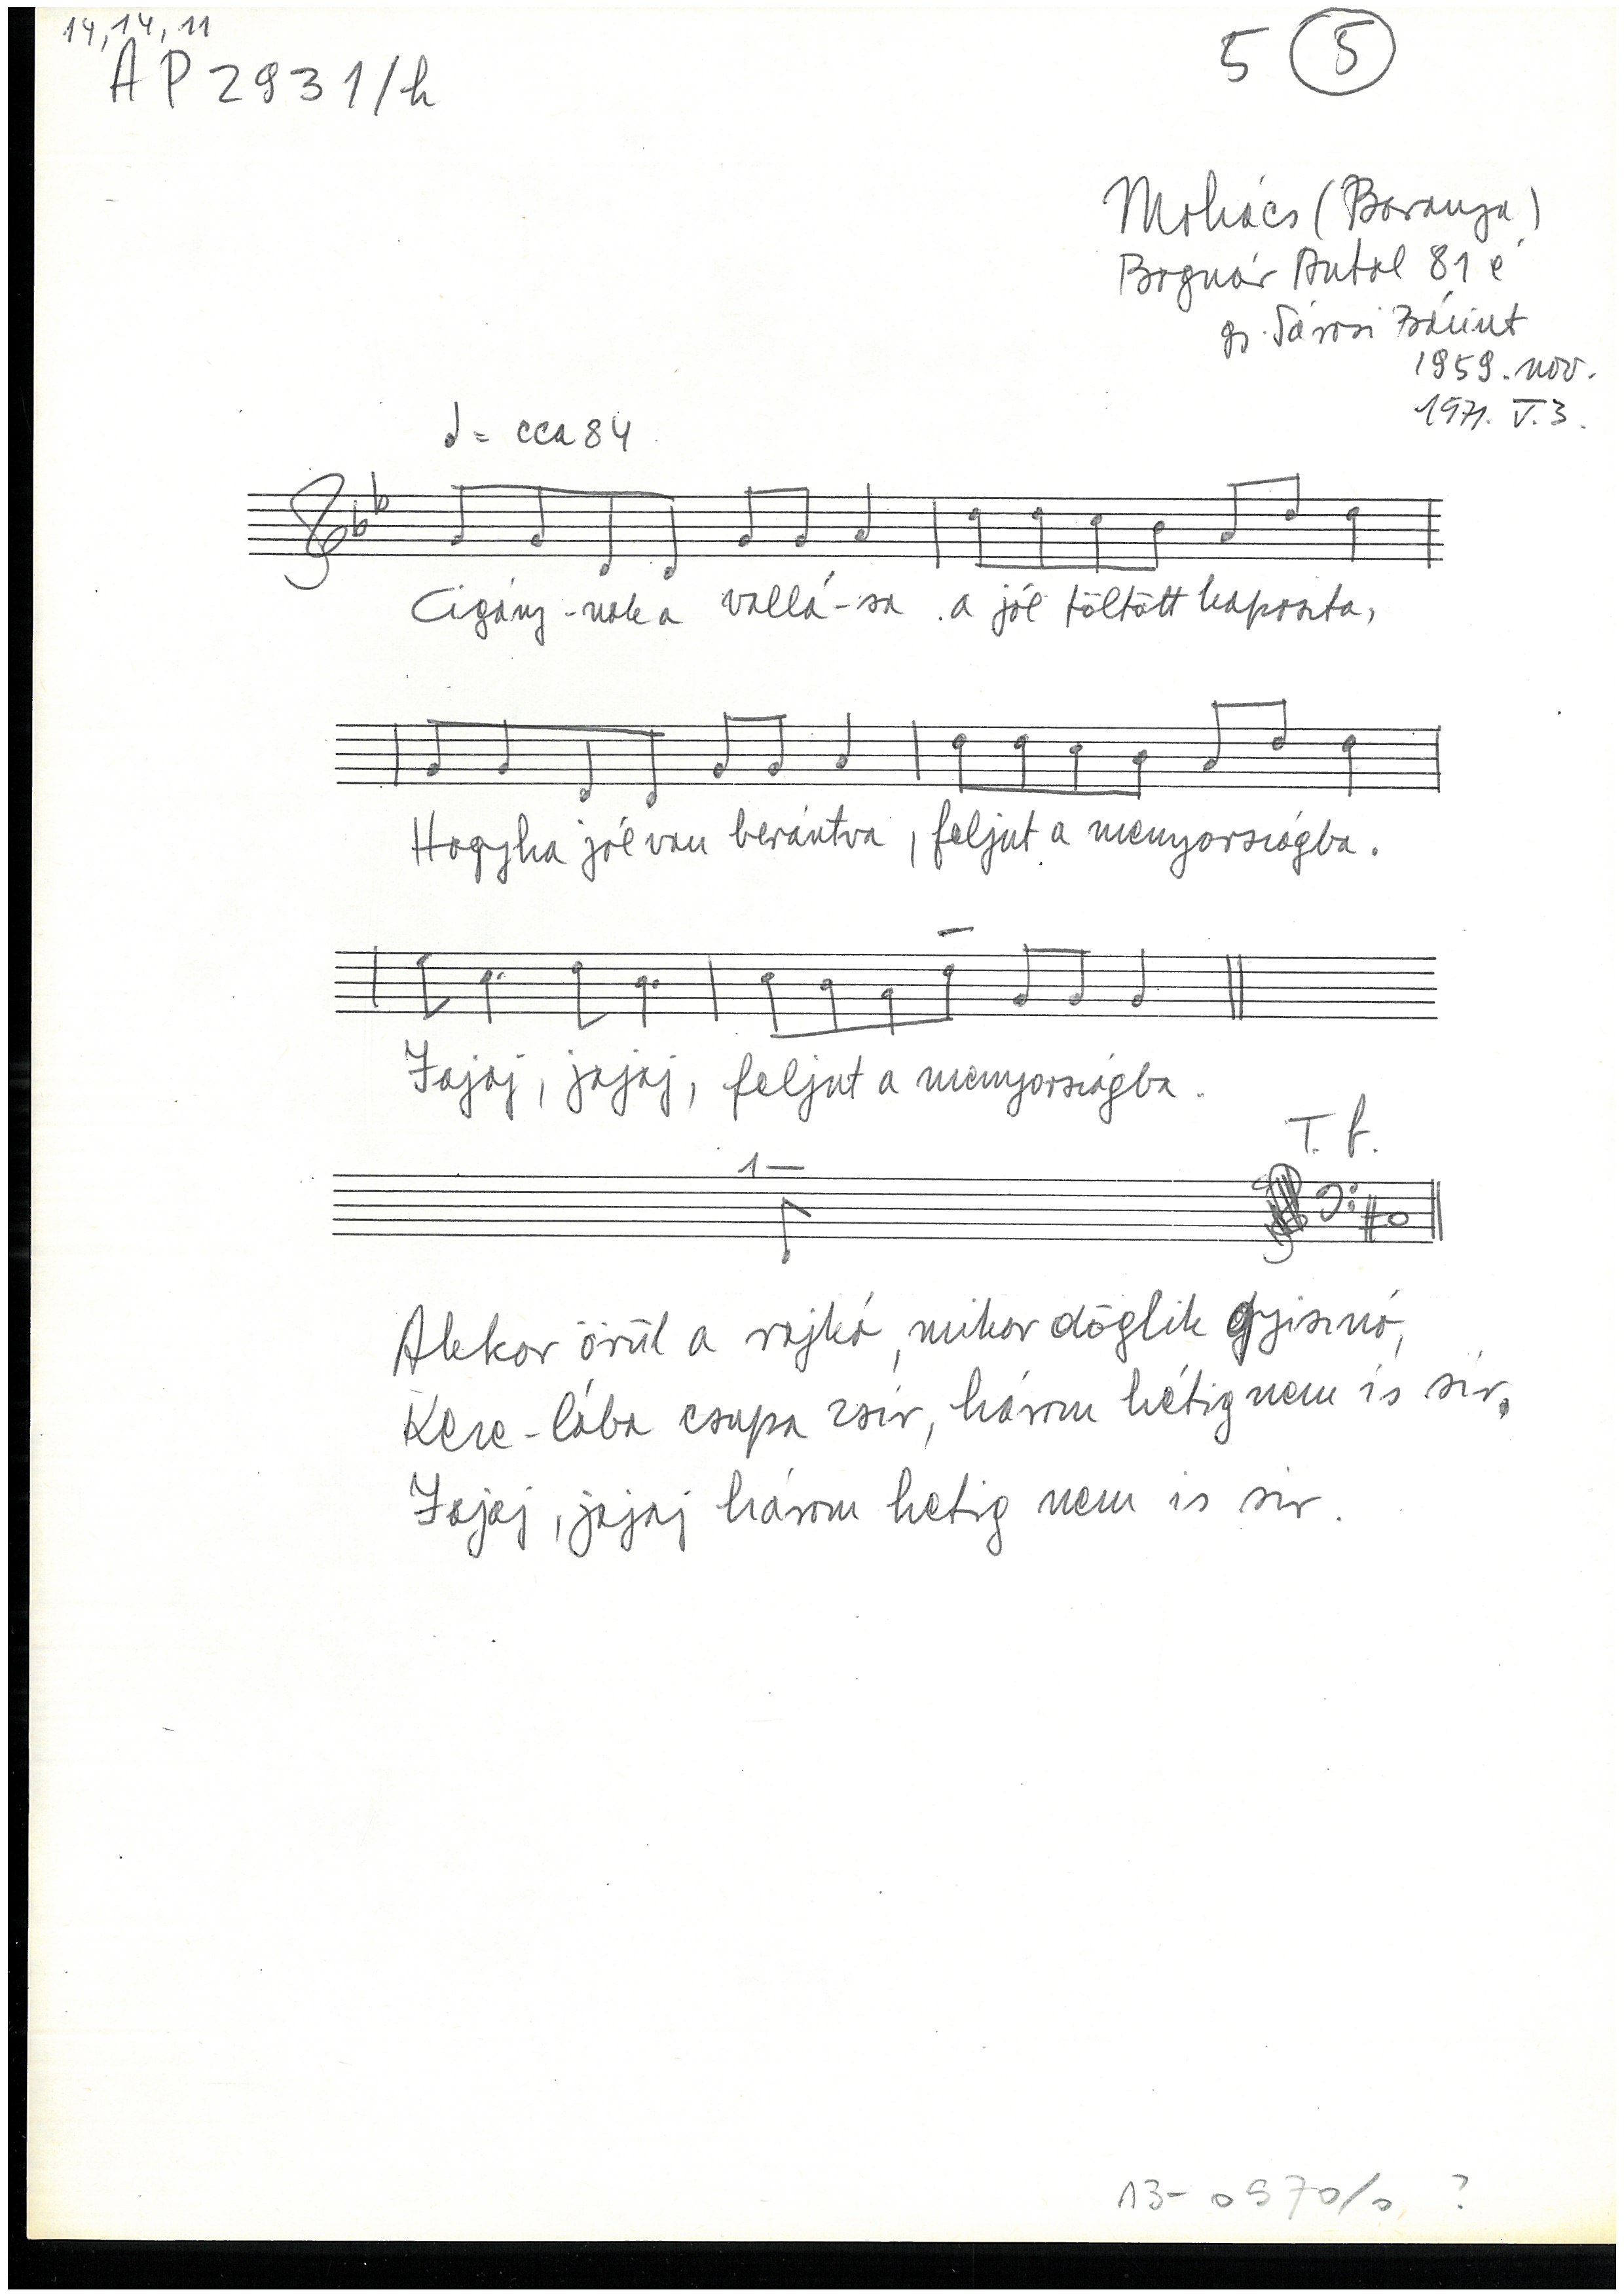 14, 14, 11
AP 2931/h
5 5
Mohács (Baranya)
Bognár Antal 81 é
gy. Sárosi Bálint
1959. nov.
1971. V. 3.
= cca 84
Cigány-nak a vallá-sa a jól töltött kaposzta,
Hogyha jól van berántva, feljut a menyországba.
Jajaj, jajaj, feljut a menyországba.
T. f.
1
Akkor örül a rajkó, mikor döglik gyisznó,
Keze-lába csupa zsír, három hétig nem is sír.
Jajaj, jajaj három hetig nem is sir.
13- 0570/ ?